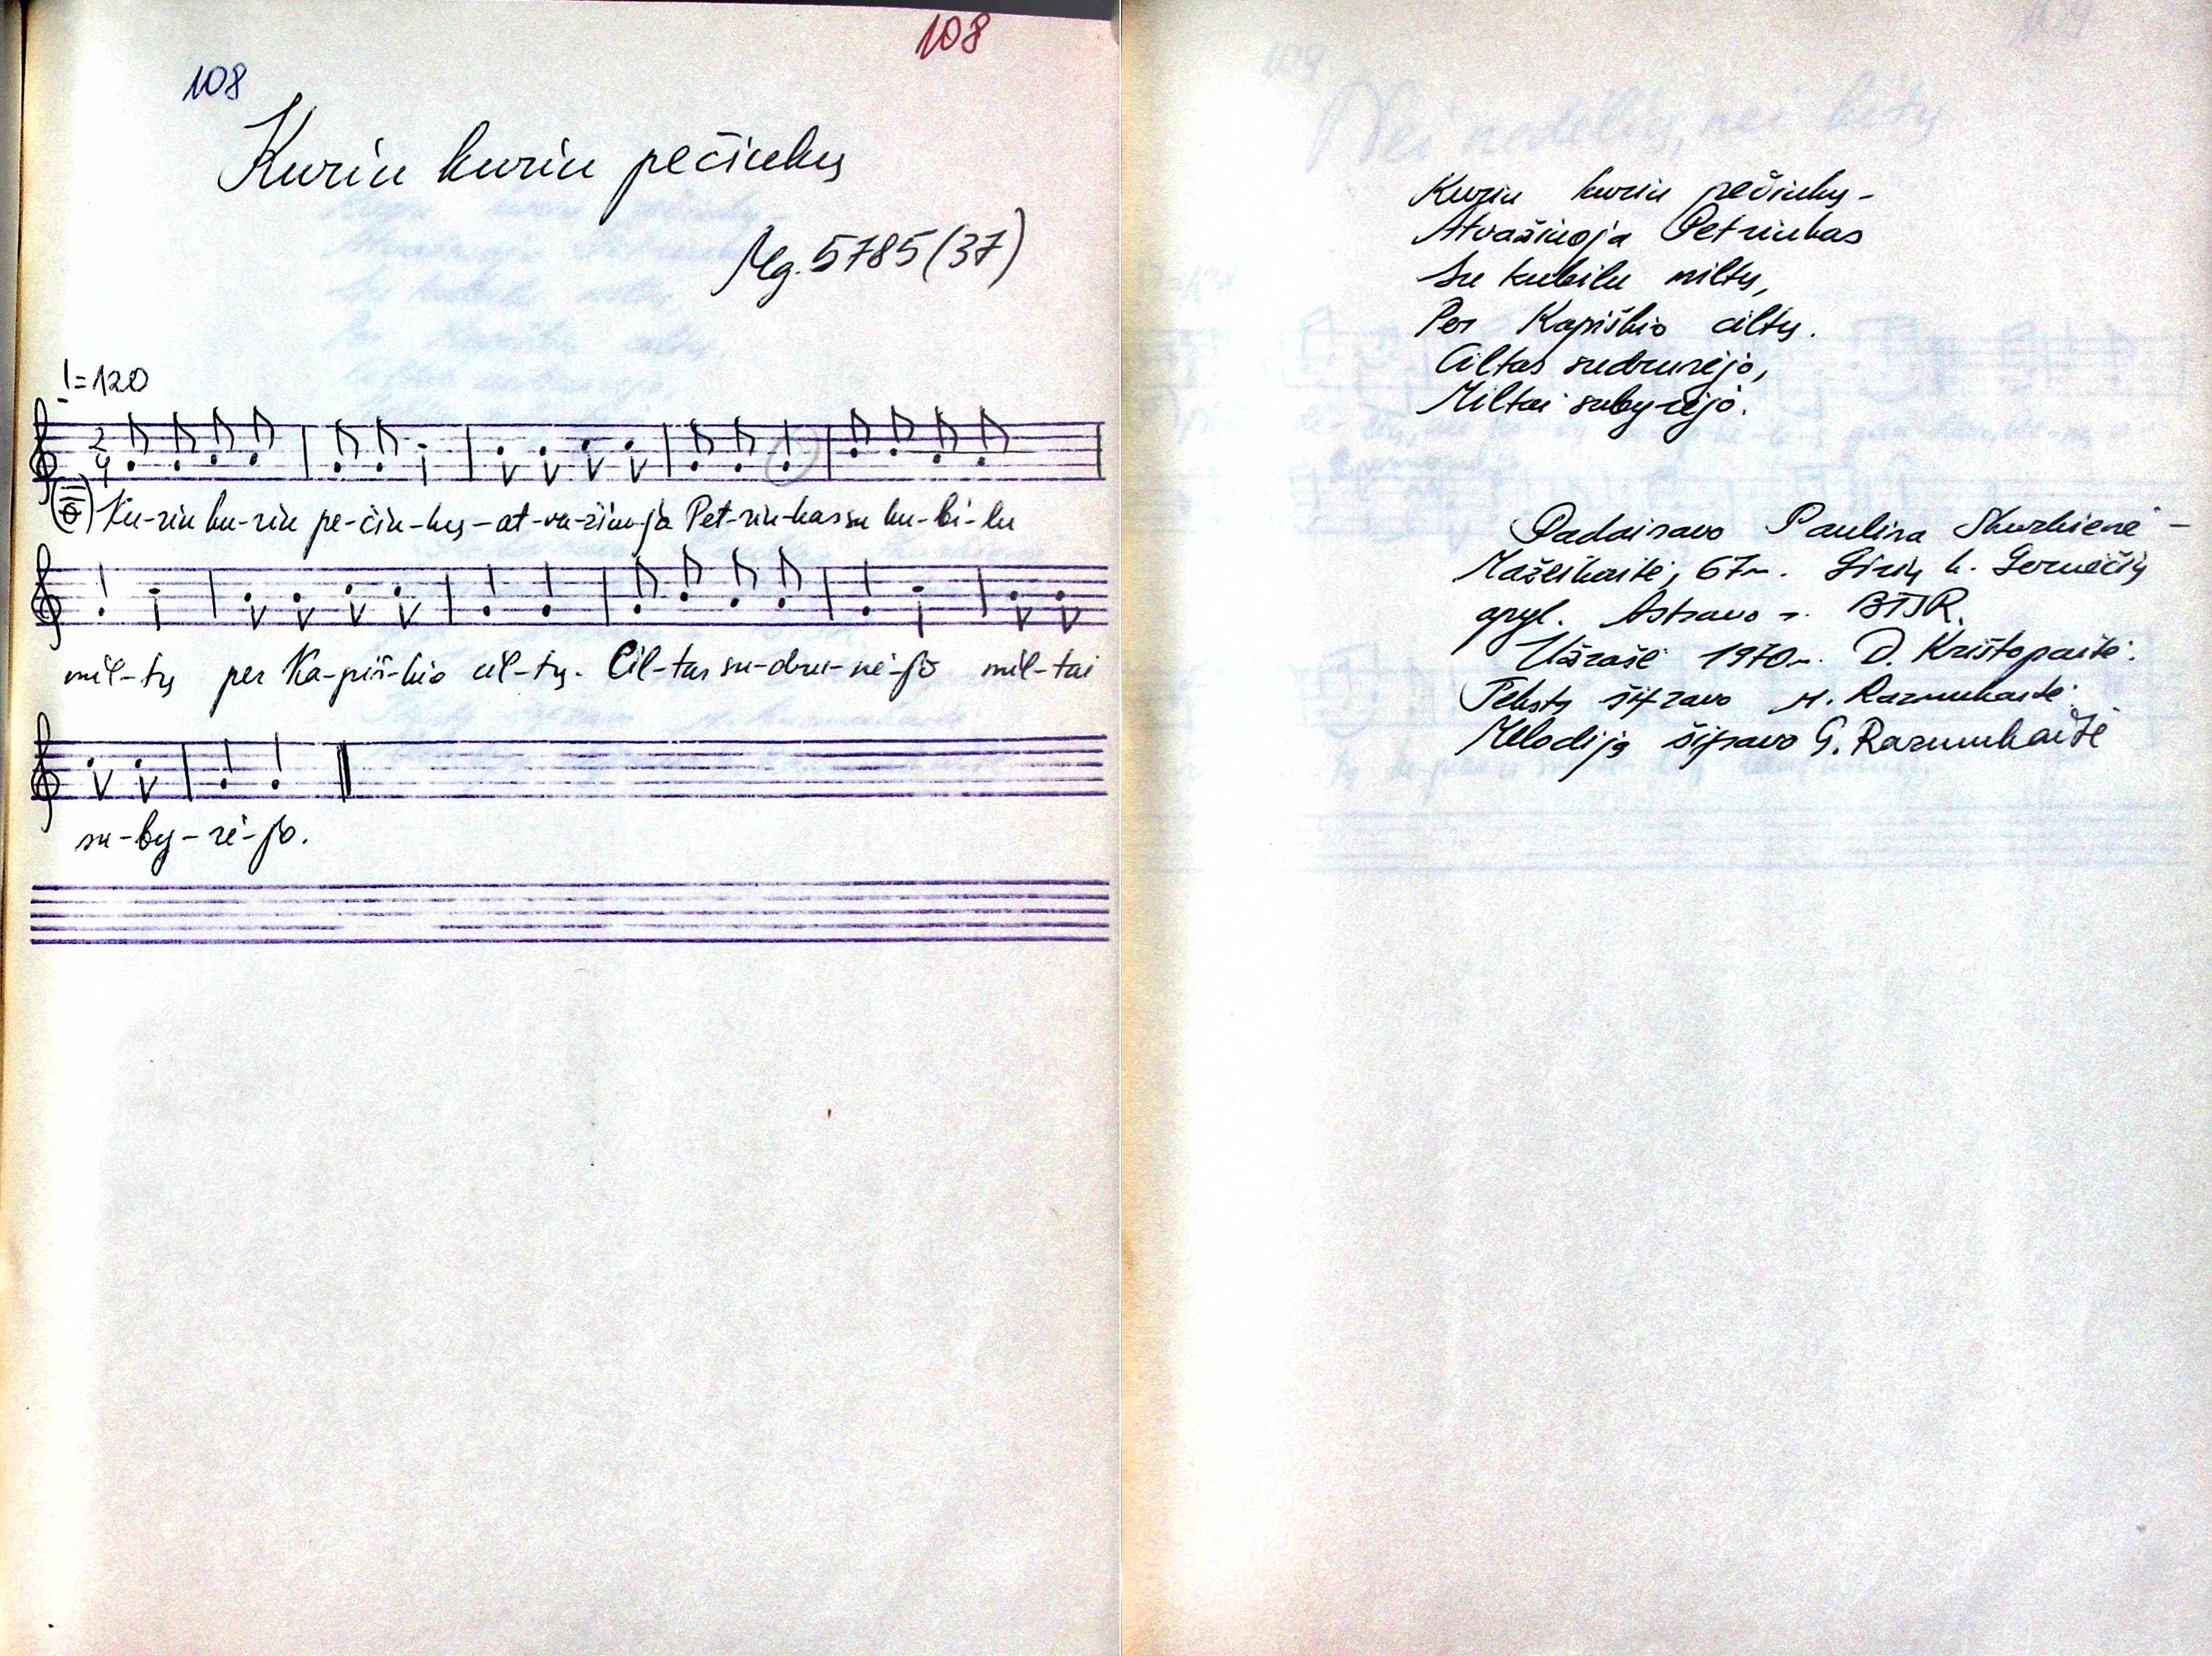 108
108
Kuriu kuriu pečiukų
Mg. 5785 (37)
♩=120
2/4
Ku-riu ku-riu pe-čiu-kų-at-va-žiuo-ja Pet-riu-kas su ku-bi-lu
mil-tų per Ka-piš-kio cil-tų. Cil-tas su-dru-nė-jo mil-tai
su-by-rė-jo.
Kuriu kuriu pečiukų-
Atvažiuoja Petriukas
Su kubilu miltų,
Per Kapiškio ciltų.
Ciltas sudrunėjo,
Miltai subyrėjo.
Padainavo Paulina Skurkienė-
Mažeikaitė, 67m. Girių k. Gervėčių
apyl. Astravo r. BTSR.
Užrašė 1970m. D. Krištopaitė.
Tekstą šifravo M. Razmukaitė.
Melodiją šifravo G. Razmukaitė